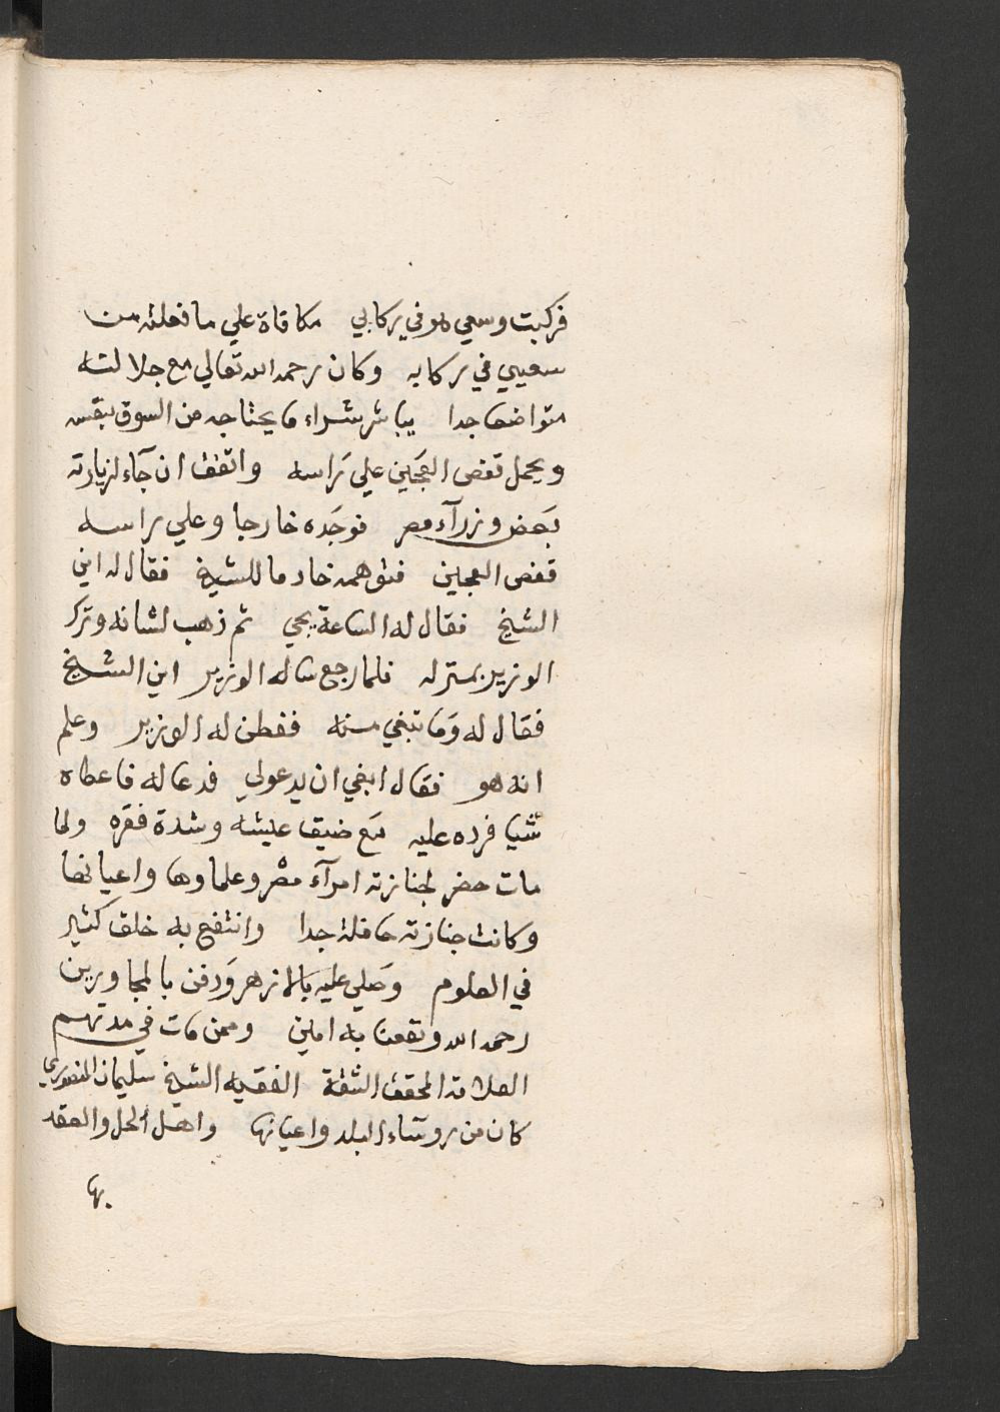 فركبت وسعي هو في ركابي مكافاة علي ما فعلته من
سعيي في ركابه وكان رحمه الله تعالي مع جلالته
متواضعا جدا يباشر شراء ما يحتاجه من السوق بنفسه
ويحمل قفص العجين علي راسه واتفق ان جآء لزيارته
بعض وزرآء مصر فوجده خارجا وعلي راسه
قفص العجين فتوهمه خادما للشيخ فقال له اين
الشيخ فقال له الساعة يجي ثم ذهب لشانه وترك
الوزير بمنزله فلما رجع ساله الوزير اين الشيخ
فقال له وما تبغي منه ففطن له الوزير وعلم
انه هو فقال ابغي ان يدعولي فدعا له فاعطاه
شيا فرده عليه مع ضيق عيشه وشدة فقره ولما
مات حضر لجنازته امرآء مصر وعلماوها واعيانها
وكانت جنازته حافلة جدا وانتفع به خلق كثير
في العلوم وصلي عليه بالازهر ودفن بالمجاورين
رحمه الله ونفعنا به امين وممن مات في مدتهم
العلامة المحقق الثقة الفقيه الشيخ سليمان المنصوري
كان من روساء البلد واعيانها واهل الحل والعقد
بها